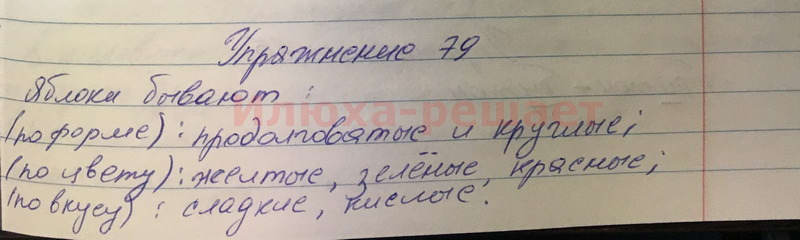 Упражнение 79
Яблоки бывают :
Илюха-решает
(по форме) : продолговатые и круглые;
(по цвету) : желтые, зелёные, красные;
(по вкусу) : сладкие, кислые.